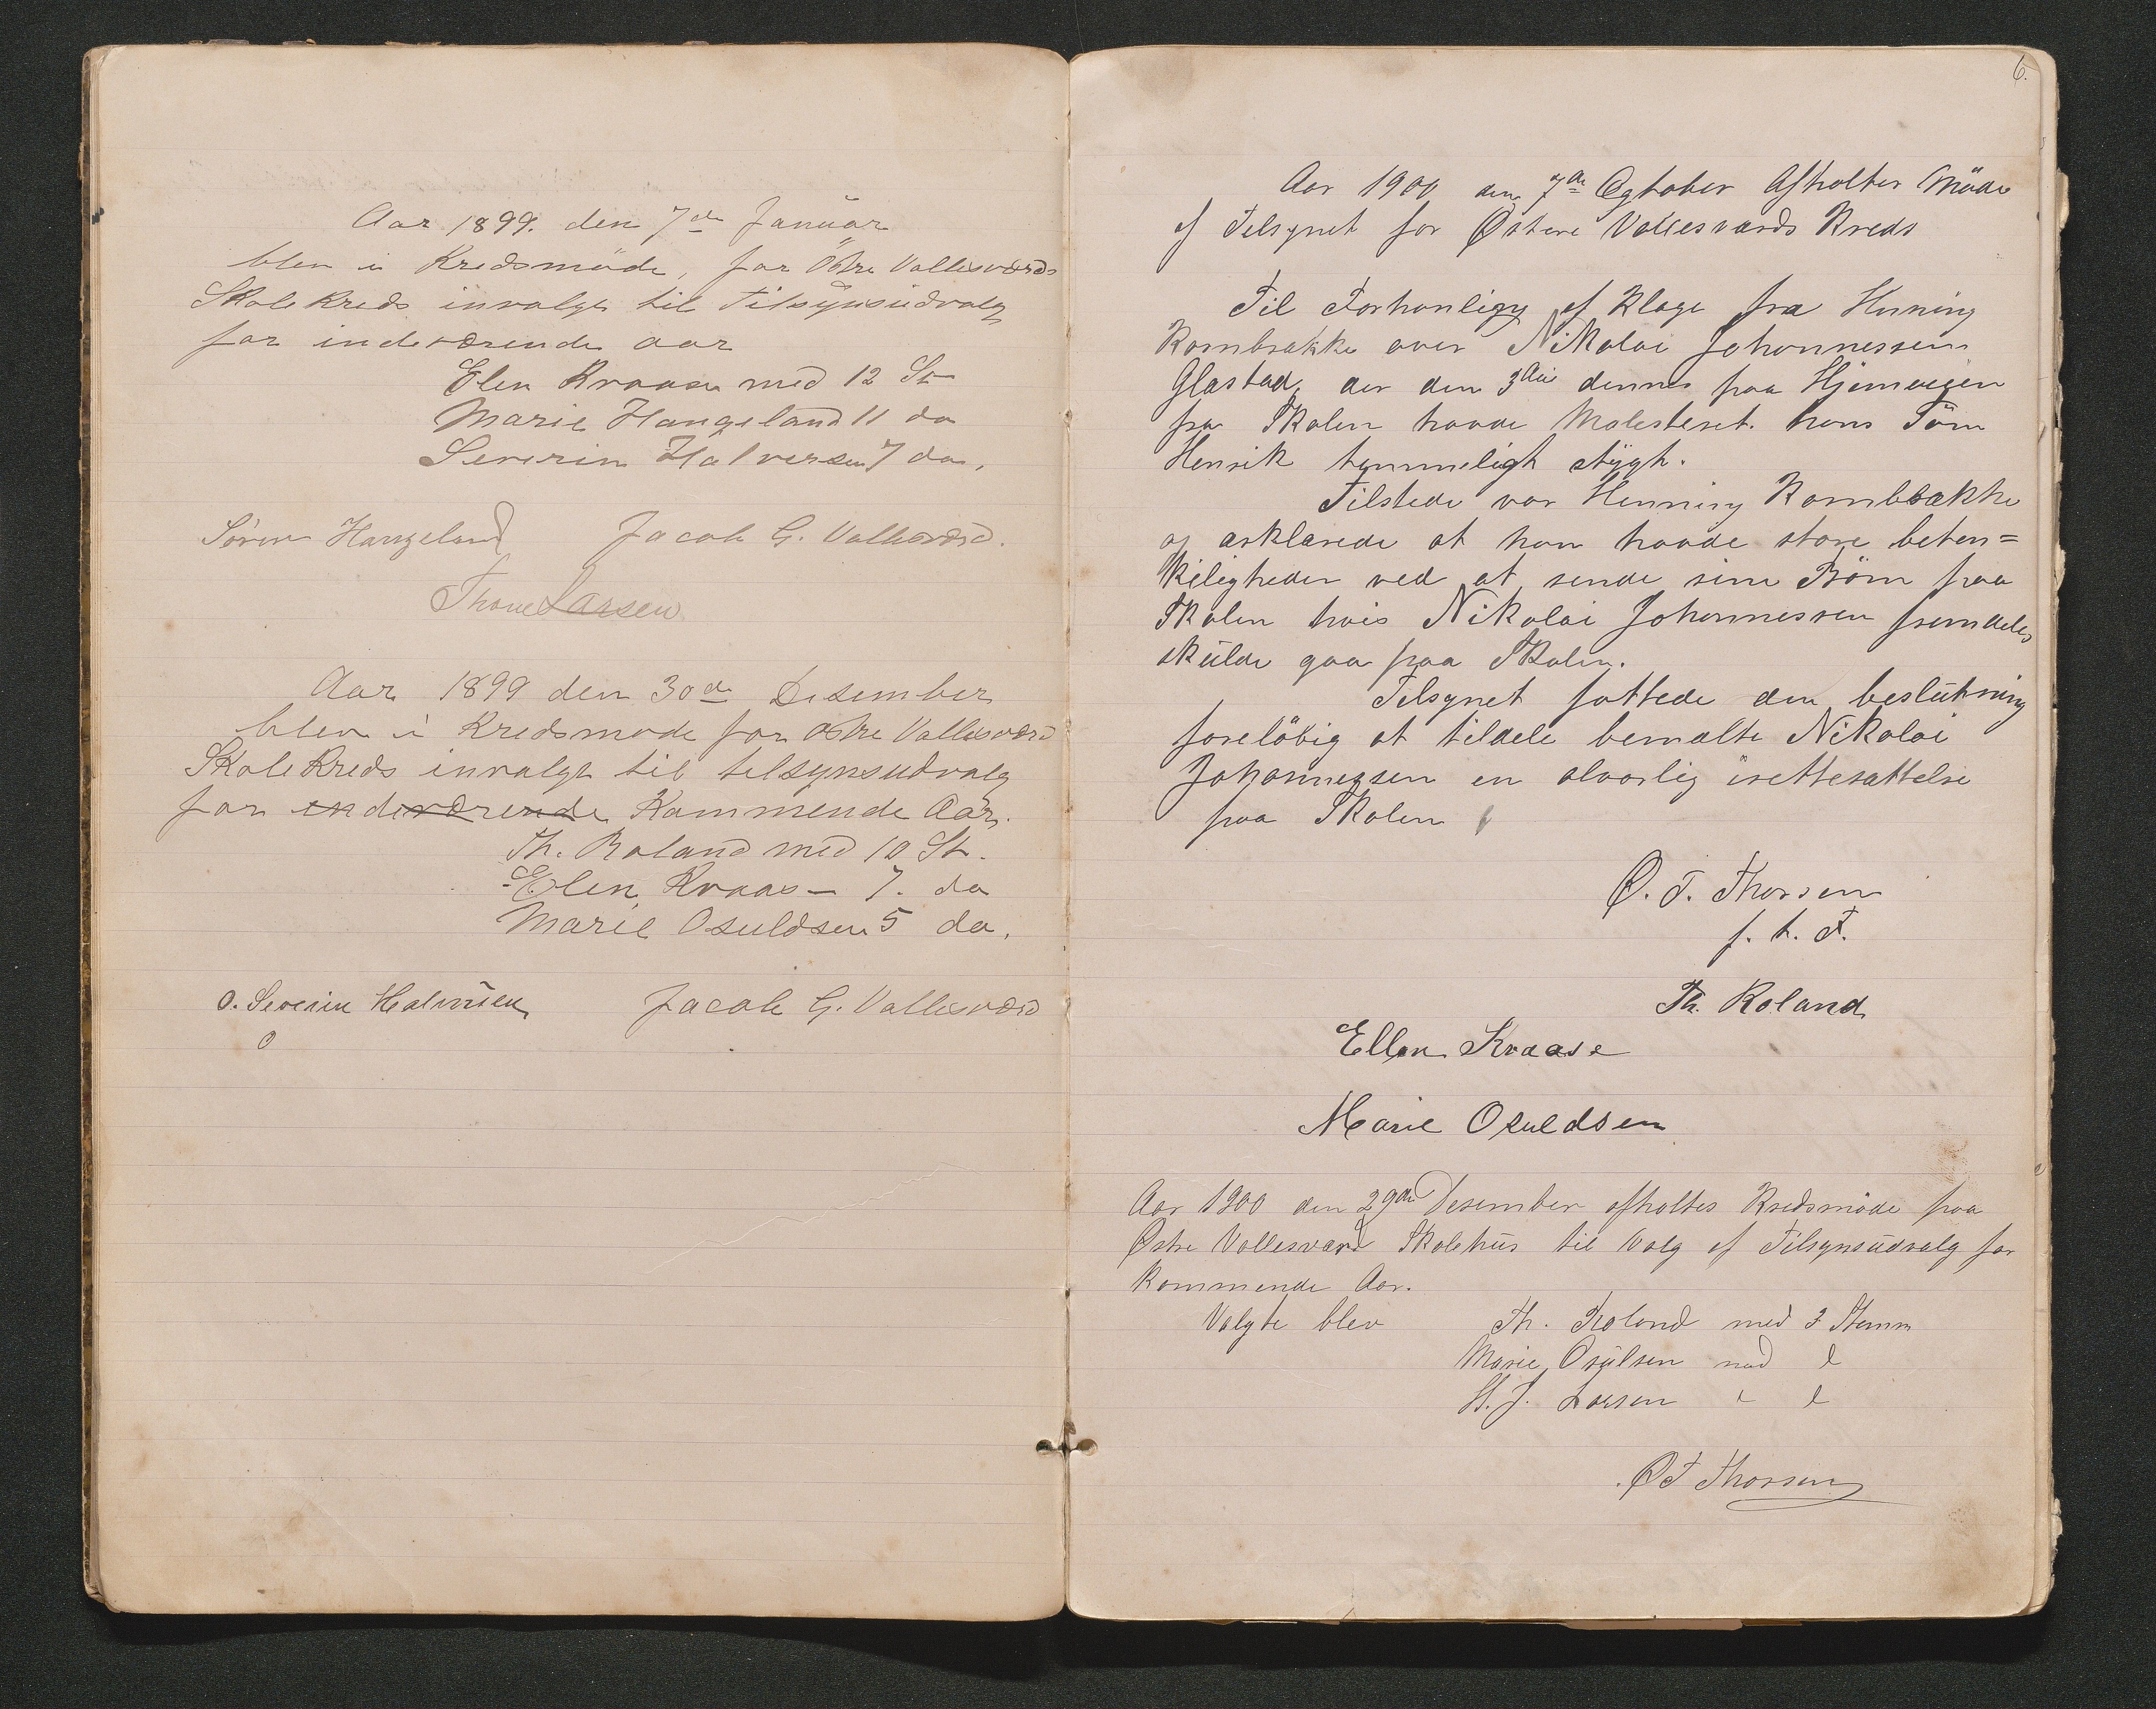 Aar 1899. den 7de Januar
blev i Kredsmöde, for Östre Vallesværds
Skolekreds invalgt til Tilsynsudvalg
for indeværende aar
Elen Kraase med 12 St
Marie Haugeland 11 do
Severin Halversen 7 do.
Sören Haugeland Jacob G. Vallesværd.
Thone Larsen
Aar 1899 den 30de Desember
blev i Kredsmøde for Østre Vallesværd
Skolekreds invalgt til tilsynsudvalg
for indeværende Kommende Aar.
Th. Roland med 10 St.
Elen Kraas – 7. do
Marie Osuldsen 5 do.
O. Severin Halvorsen Jacob G. Vallesværd
6.
Aar 1900 den 7de Ogtober Afholtes Möde
af Tilsynet for Østere Vallesværds Kreds
Til Forhanligg af Klage fra Henning
Kornbrække over Nikolai Johannessen
Glastad, der den 3die dennes paa Hjemveien
fra Skolen havde Molesteret hans Sön
Henrik temmeligt stygt.
Tilstede var Henning Kornbrække
og ærklærede at han havde store beten=
keligheder ved at sende sine Börn paa
Skolen hvis Nikolai Johannessen fremdeles
skulde gaa paa Skolen.
Tilsynet fattede den beslutning
foreløbig at tildele bemælte Nikolai
Johannessen en alvorlig irettesættelse
paa Skolen
O. T. Thorsen
f. t. F.
Th. Roland
Ellen Kraase
Marie Osuldsen
Aar 1900 den 29de Desember afholtes Kredsmöde paa
Østre Vallesværd Skolehus til Valg af Tilsynsudvalg for
kommende Aar.
Valgte blev Th. Roland med 3 Stemm
Marie Osulsen med l
H. J. Larsen " l
O T Thorsen